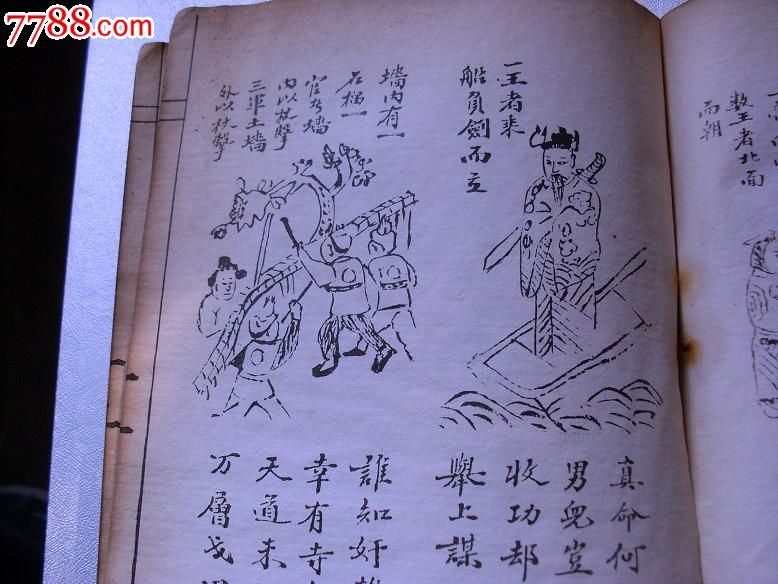 7788.com
數王者北面
而朝
一王者乘
船負劍而立
墻内有一
石榴一
官者墻
内以杖擊
三軍士墻
外以杖擊
真命何
男兒豈
收功却
舉上謀
誰知奸
幸有寺
天道未
万層戈